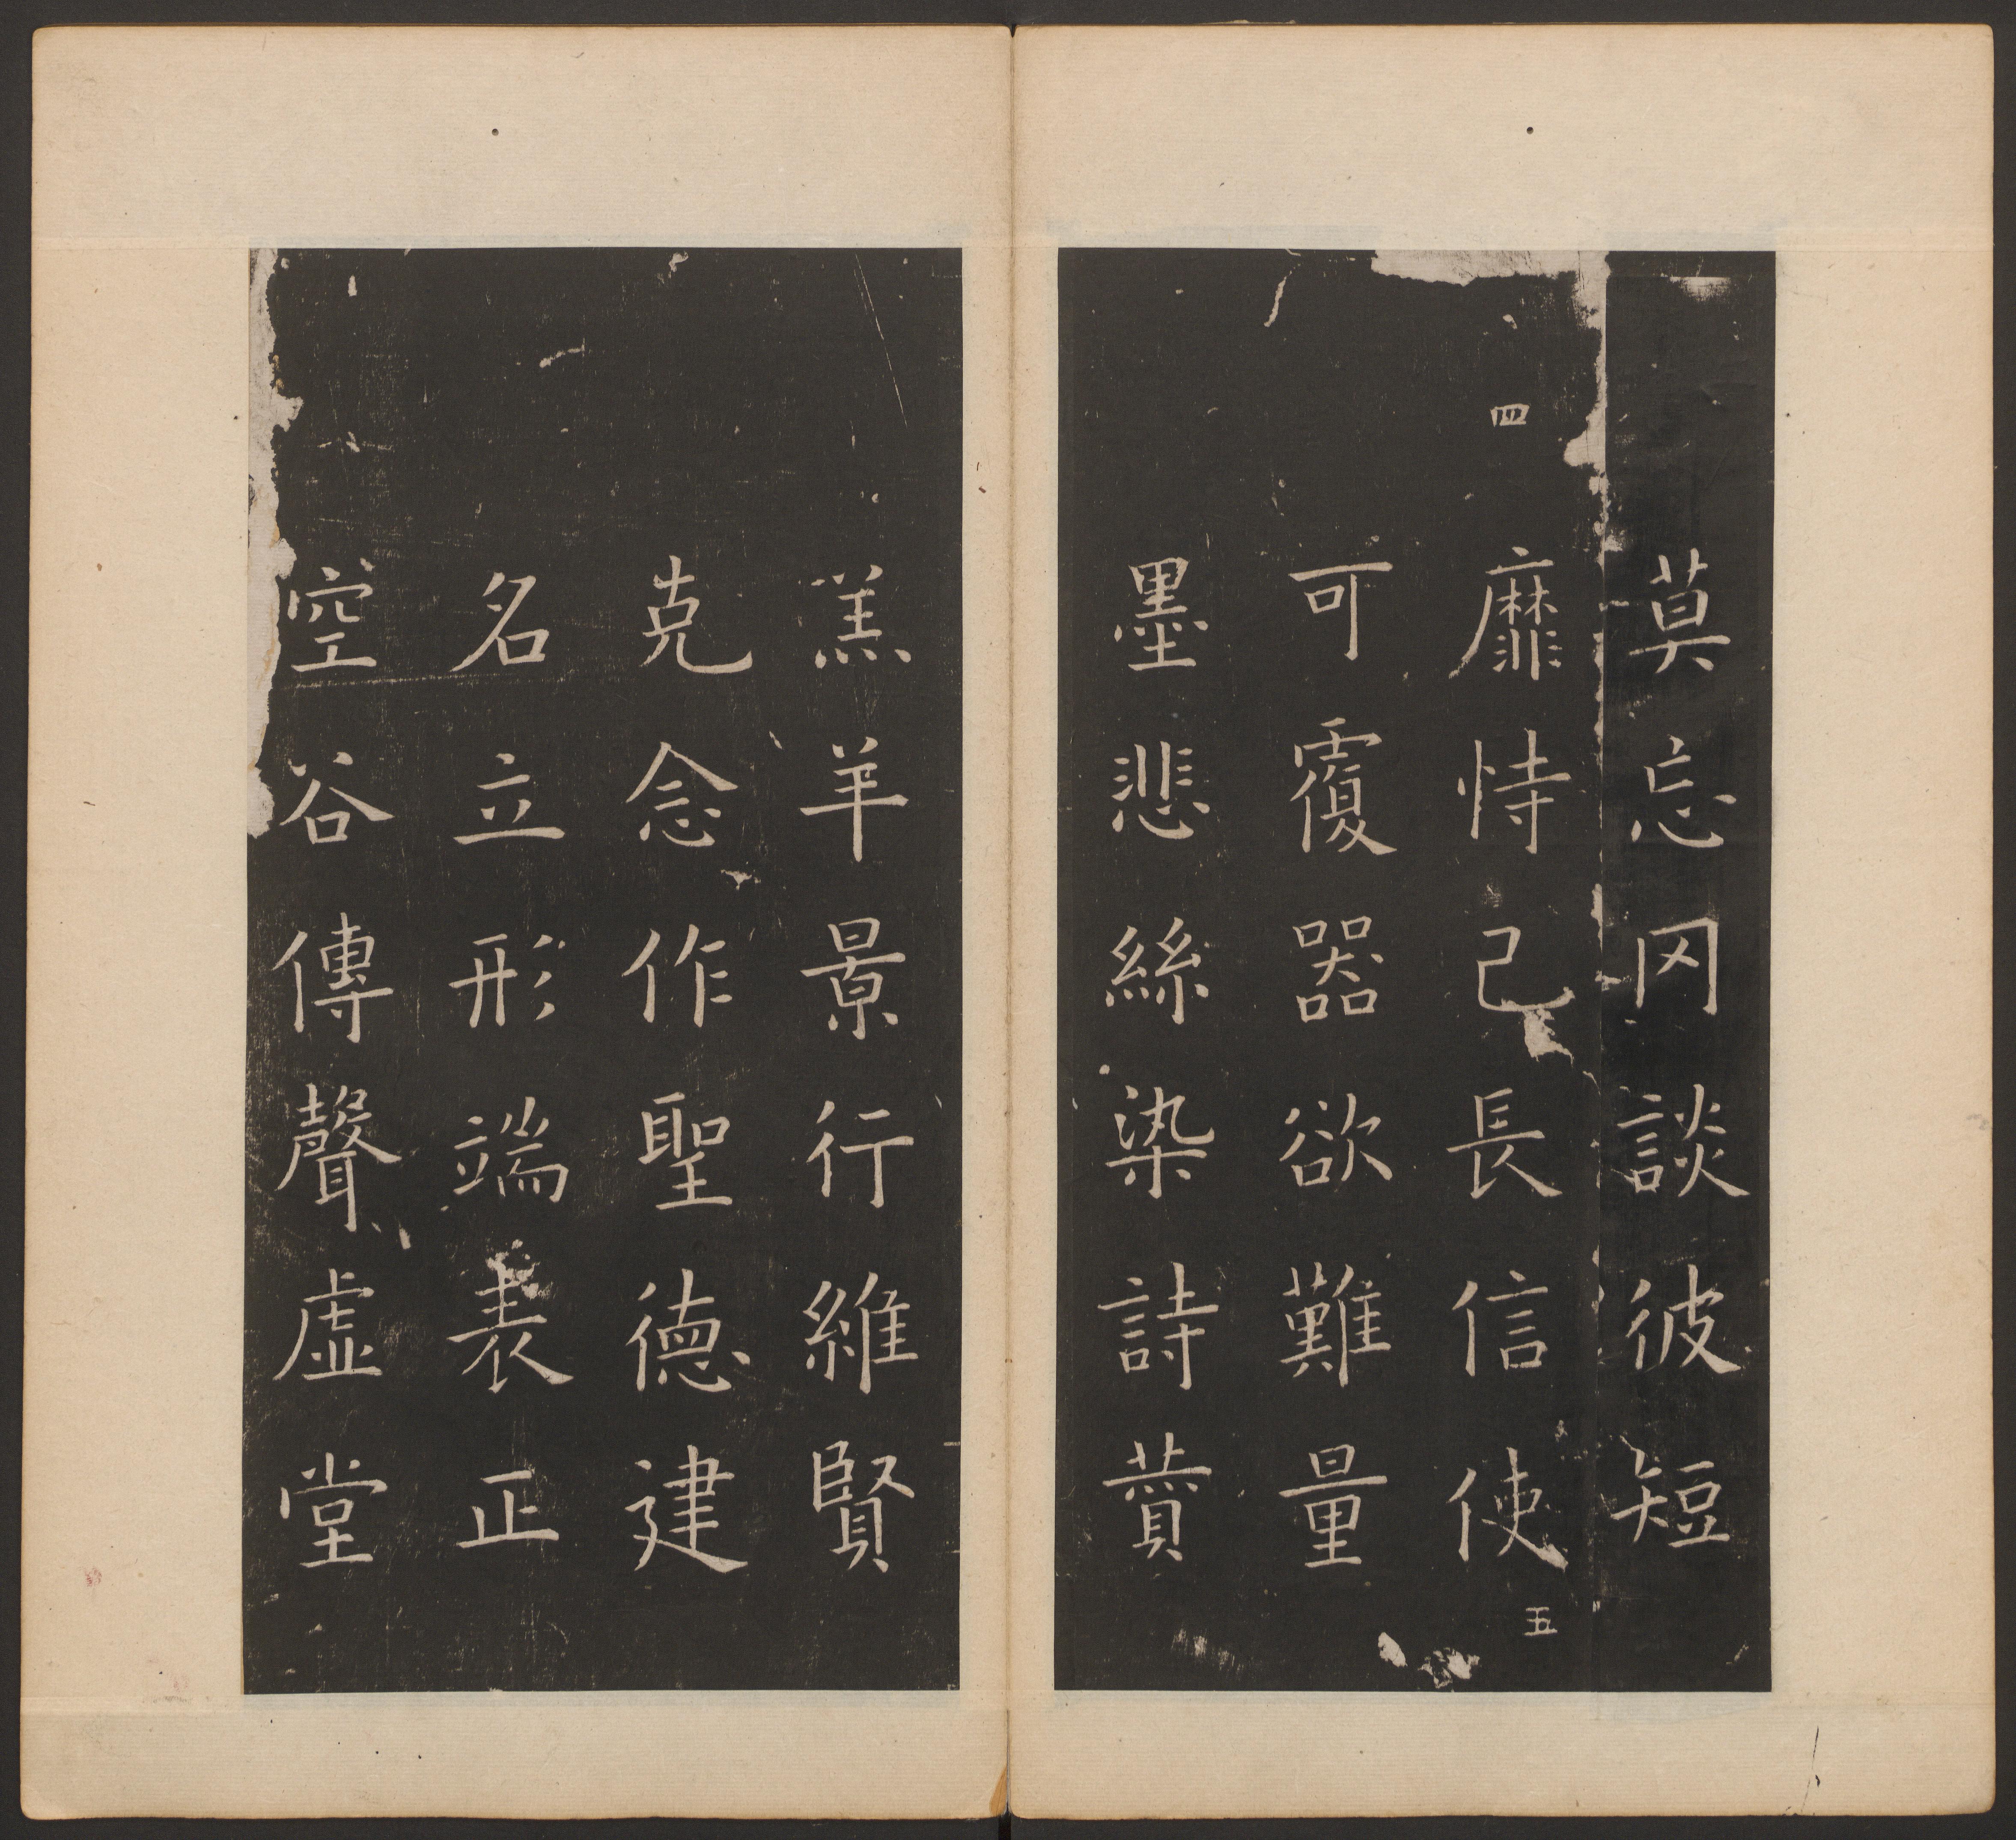 莫忘罔談彼短
四
靡恃己長信使
五
可覆器欲難量
墨悲絲染詩讚
羔羊景行維賢
克念作聖德建
名立形端表正
空谷傳聲虛堂